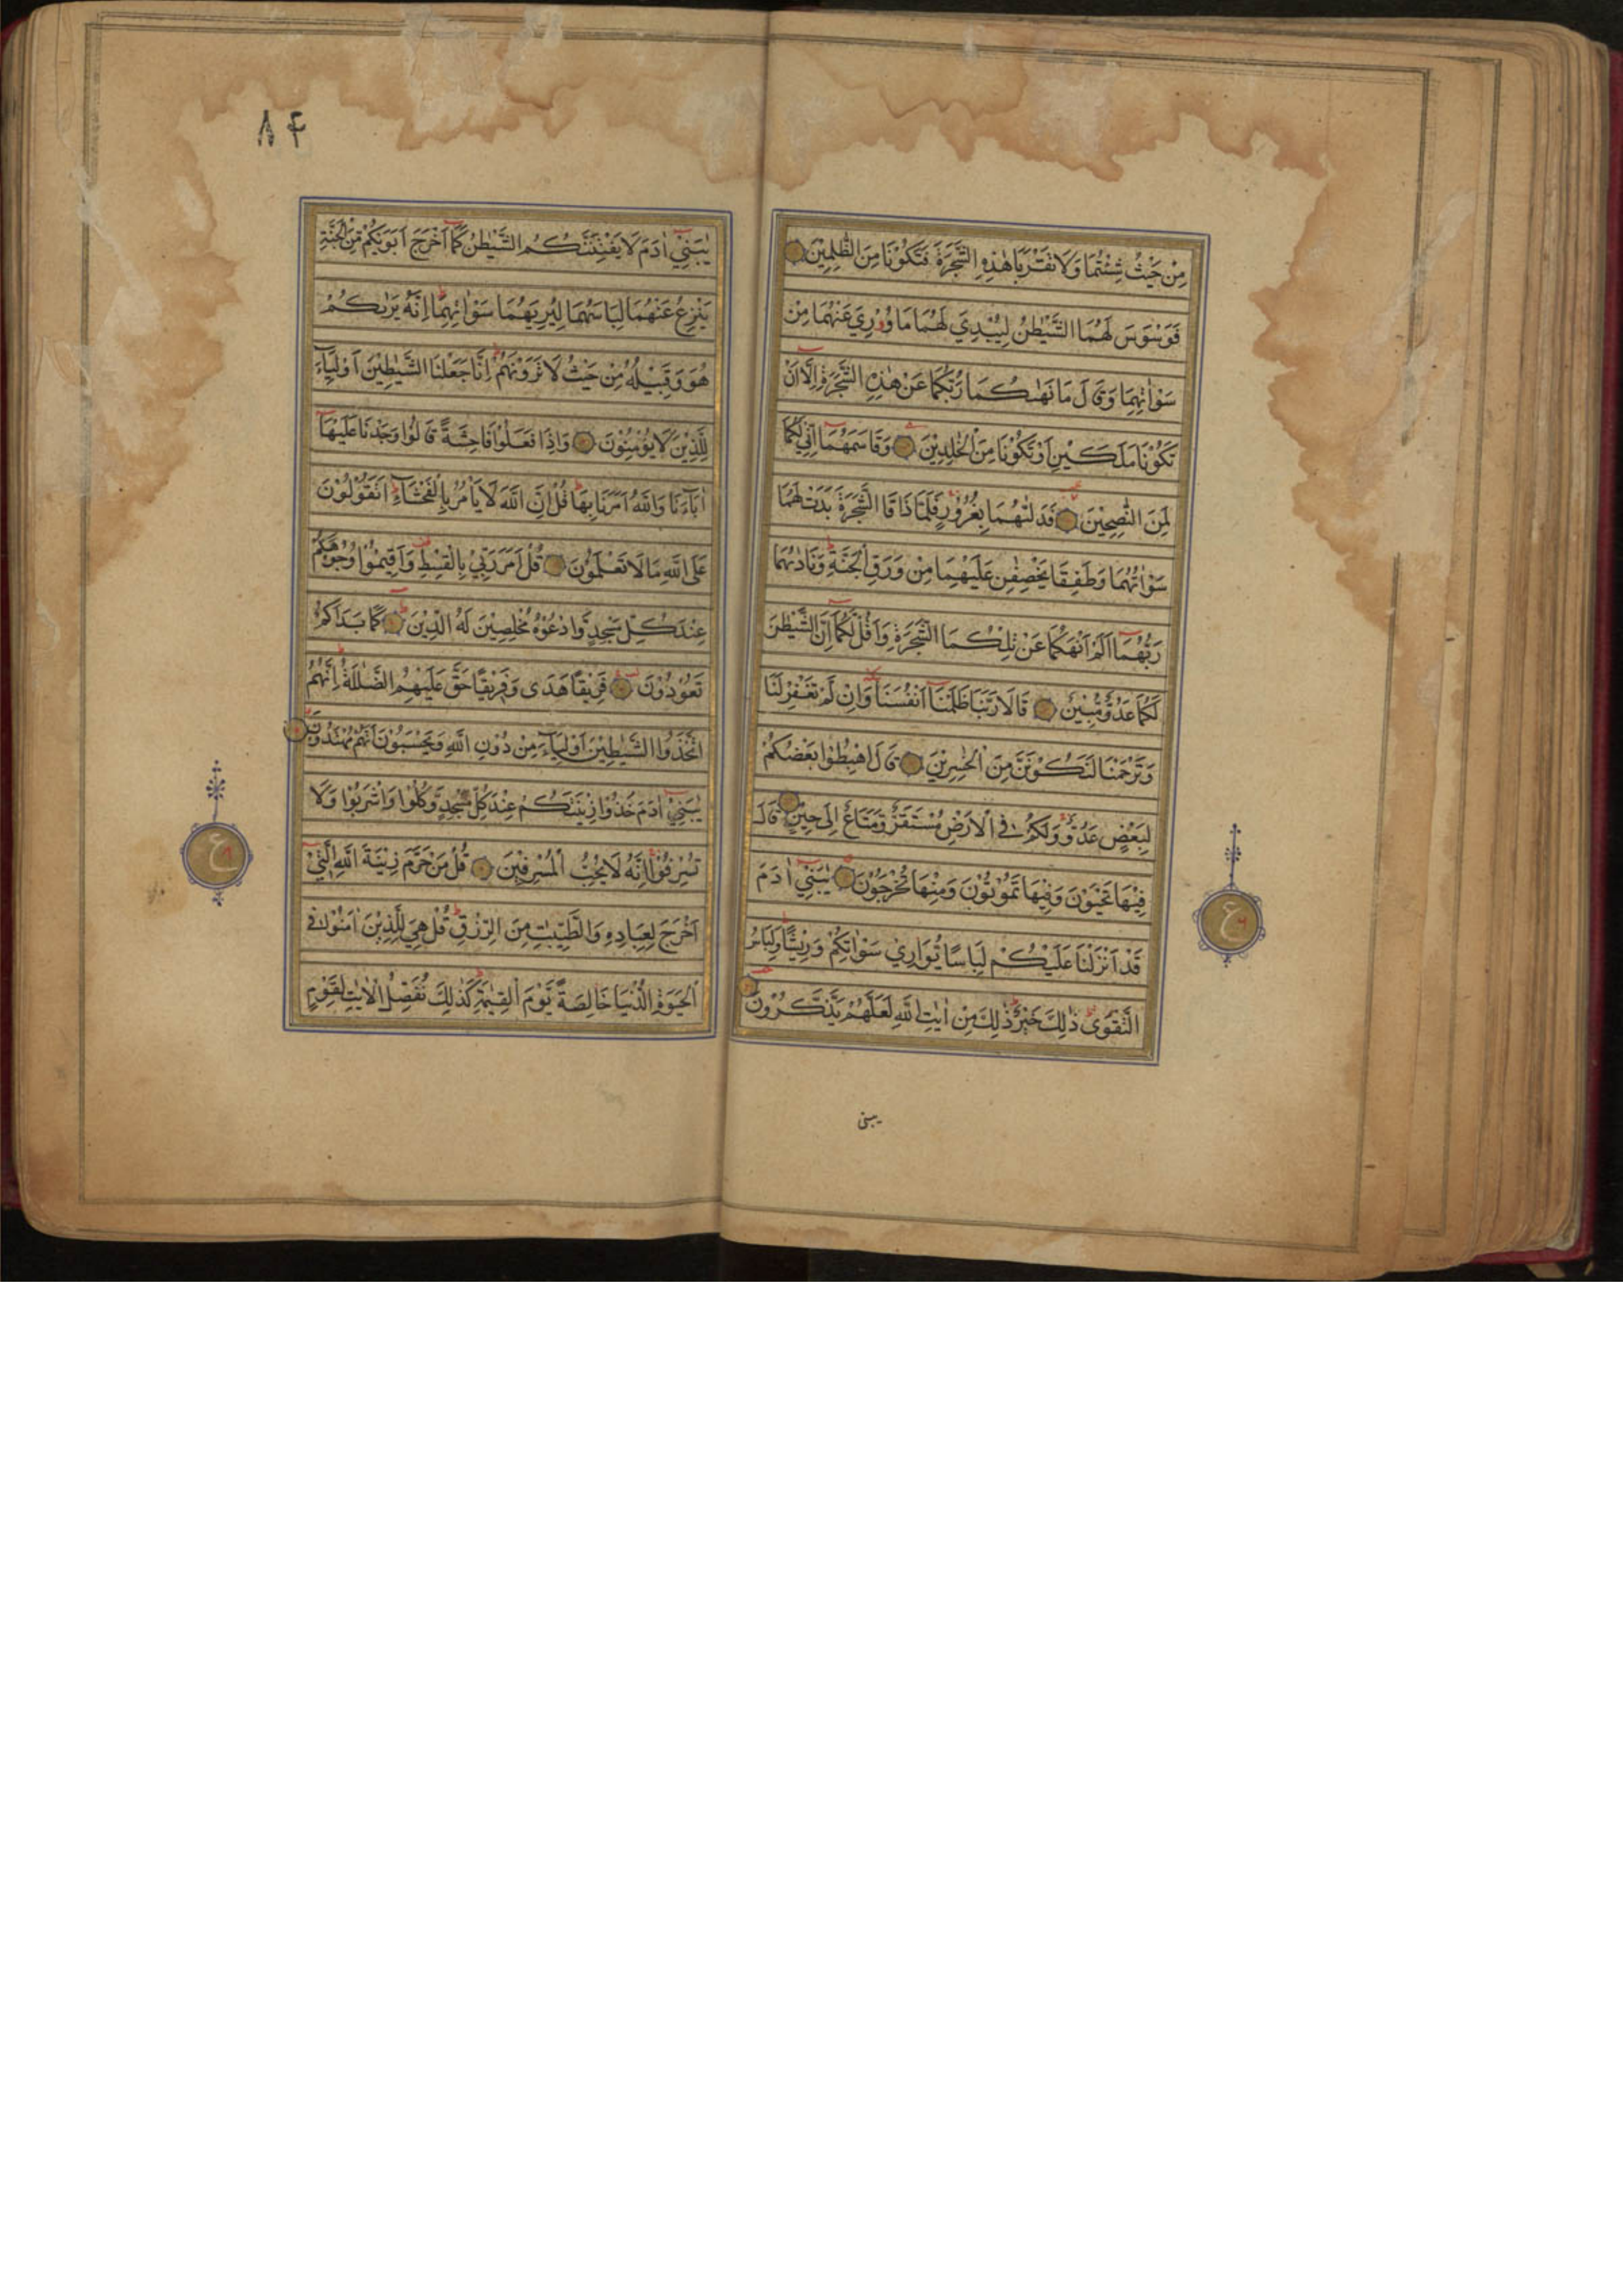 مِنْ حَيْثُ شِئْتُمَا وَلَا تَقْرَبَا هٰذِهِ الشَّجَرَةَ فَتَكُوْنَا مِنَ الظّٰلِمِيْنَ
فَوَسْوَسَ لَهُمَا الشَّيْطٰنُ لِيُبْدِيَ لَهُمَا مَا وٗرِيَ عَنْهُمَا مِنْ
سَوْاٰتِهِمَا وَقَالَ مَا نَهٰىكُمَا رَبُّكُمَا عَنْ هٰذِهِ الشَّجَرَةِ اِلَّا اَنْ
تَكُوْنَا مَلَكَيْنِ اَوْ تَكُوْنَا مِنَ الْخٰلِدِيْنَ وَقَاسَمَهُمَا اِنِّيْ لَكُمَا
لَمِنَ النّٰصِحِيْنَ فَدَلّٰىهُمَا بِغُرُوْرٍ فَلَمَّا ذَاقَا الشَّجَرَةَ بَدَتْ لَهُمَا
سَوْاٰتُهُمَا وَطَفِقَا يَخْصِفٰنِ عَلَيْهِمَا مِنْ وَرَقِ الْجَنَّةِ وَنَادٰىهُمَا
رَبُّهُمَا اَلَمْ اَنْهَكُمَا عَنْ تِلْكُمَا الشَّجَرَةِ وَاَقُلْ لَّكُمَا اِنَّ الشَّيْطٰنَ
لَكُمَا عَدُوٌّ مُّبِيْنٌ قَالَا رَبَّنَا ظَلَمْنَا اَنْفُسَنَا وَاِنْ لَّمْ تَغْفِرْ لَنَا
وَتَرْحَمْنَا لَنَكُوْنَنَّ مِنَ الْخٰسِرِيْنَ قَالَ اهْبِطُوْا بَعْضُكُمْ
لِبَعْضٍ عَدُوٌّ وَلَكُمْ فِي الْاَرْضِ مُسْتَقَرٌّ وَّمَتَاعٌ اِلٰى حِيْنٍ قَالَ
فِيْهَا تَحْيَوْنَ وَفِيْهَا تَمُوْتُوْنَ وَمِنْهَا تُخْرَجُوْنَ يٰبَنِيْ اٰدَمَ
قَدْ اَنْزَلْنَا عَلَيْكُمْ لِبَاسًا يُّوَارِيْ سَوْاٰتِكُمْ وَرِيْشًا وَلِبَاسُ
التَّقْوٰى ذٰلِكَ خَيْرٌ ذٰلِكَ مِنْ اٰيٰتِ اللّٰهِ لَعَلَّهُمْ يَذَّكَّرُوْنَ
يبنى
ع
٨٤
يٰبَنِيْ اٰدَمَ لَا يَفْتِنَنَّكُمُ الشَّيْطٰنُ كَمَا اَخْرَجَ اَبَوَيْكُمْ مِّنَ الْجَنَّةِ
يَنْزِعُ عَنْهُمَا لِبَاسَهُمَا لِيُرِيَهُمَا سَوْاٰتِهِمَا اِنَّهٗ يَرٰىكُمْ
هُوَ وَقَبِيْلُهٗ مِنْ حَيْثُ لَا تَرَوْنَهُمْ اِنَّا جَعَلْنَا الشَّيٰطِيْنَ اَوْلِيَآءَ
لِلَّذِيْنَ لَا يُؤْمِنُوْنَ وَاِذَا فَعَلُوْا فَاحِشَةً قَالُوْا وَجَدْنَا عَلَيْهَا
اٰبَآءَنَا وَاللّٰهُ اَمَرَنَا بِهَا قُلْ اِنَّ اللّٰهَ لَا يَاْمُرُ بِالْفَحْشَآءِ اَتَقُوْلُوْنَ
عَلَى اللّٰهِ مَا لَا تَعْلَمُوْنَ قُلْ اَمَرَ رَبِّيْ بِالْقِسْطِ وَاَقِيْمُوْا وُجُوْهَكُمْ
عِنْدَ كُلِّ مَسْجِدٍ وَّادْعُوْهُ مُخْلِصِيْنَ لَهُ الدِّيْنَ كَمَا بَدَاَكُمْ
تَعُوْدُوْنَ فَرِيْقًا هَدٰى وَفَرِيْقًا حَقَّ عَلَيْهِمُ الضَّلٰلَةُ اِنَّهُمُ
اتَّخَذُوا الشَّيٰطِيْنَ اَوْلِيَآءَ مِنْ دُوْنِ اللّٰهِ وَيَحْسَبُوْنَ اَنَّهُمْ مُّهْتَدُوْنَ
يٰبَنِيْ اٰدَمَ خُذُوْا زِيْنَتَكُمْ عِنْدَ كُلِّ مَسْجِدٍ وَّكُلُوْا وَاشْرَبُوْا وَلَا
تُسْرِفُوْا اِنَّهٗ لَا يُحِبُّ الْمُسْرِفِيْنَ قُلْ مَنْ حَرَّمَ زِيْنَةَ اللّٰهِ الَّتِيْ
اَخْرَجَ لِعِبَادِهِ وَالطَّيِّبٰتِ مِنَ الرِّزْقِ قُلْ هِيَ لِلَّذِيْنَ اٰمَنُوْا فِي
الْحَيٰوةِ الدُّنْيَا خَالِصَةً يَّوْمَ الْقِيٰمَةِ كَذٰلِكَ نُفَصِّلُ الْاٰيٰتِ لِقَوْمٍ
ع